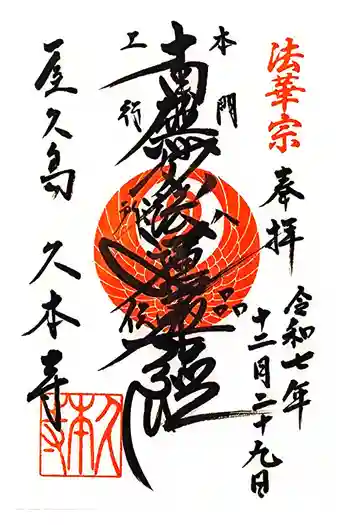 法華宗
奉拝
令和七年
十二月二十九日
本門八品
南無妙法蓮華經
上行所伝
屋久島 久本寺
久本寺